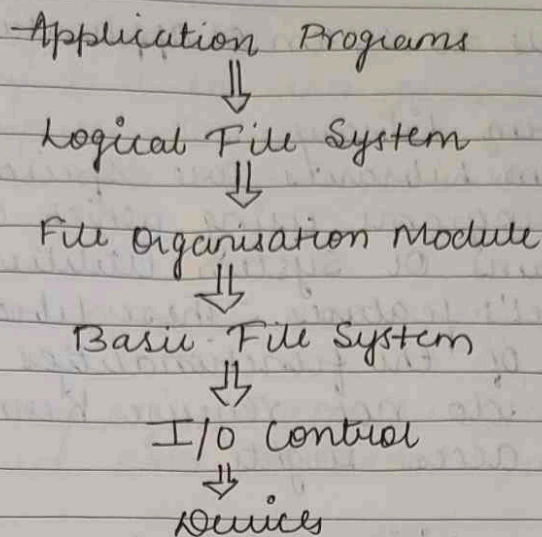 Application Programs
⇓
Logical File System
⇓
File Organisation Module
⇓
Basic File System
⇓
I/O Control
⇓
Devices